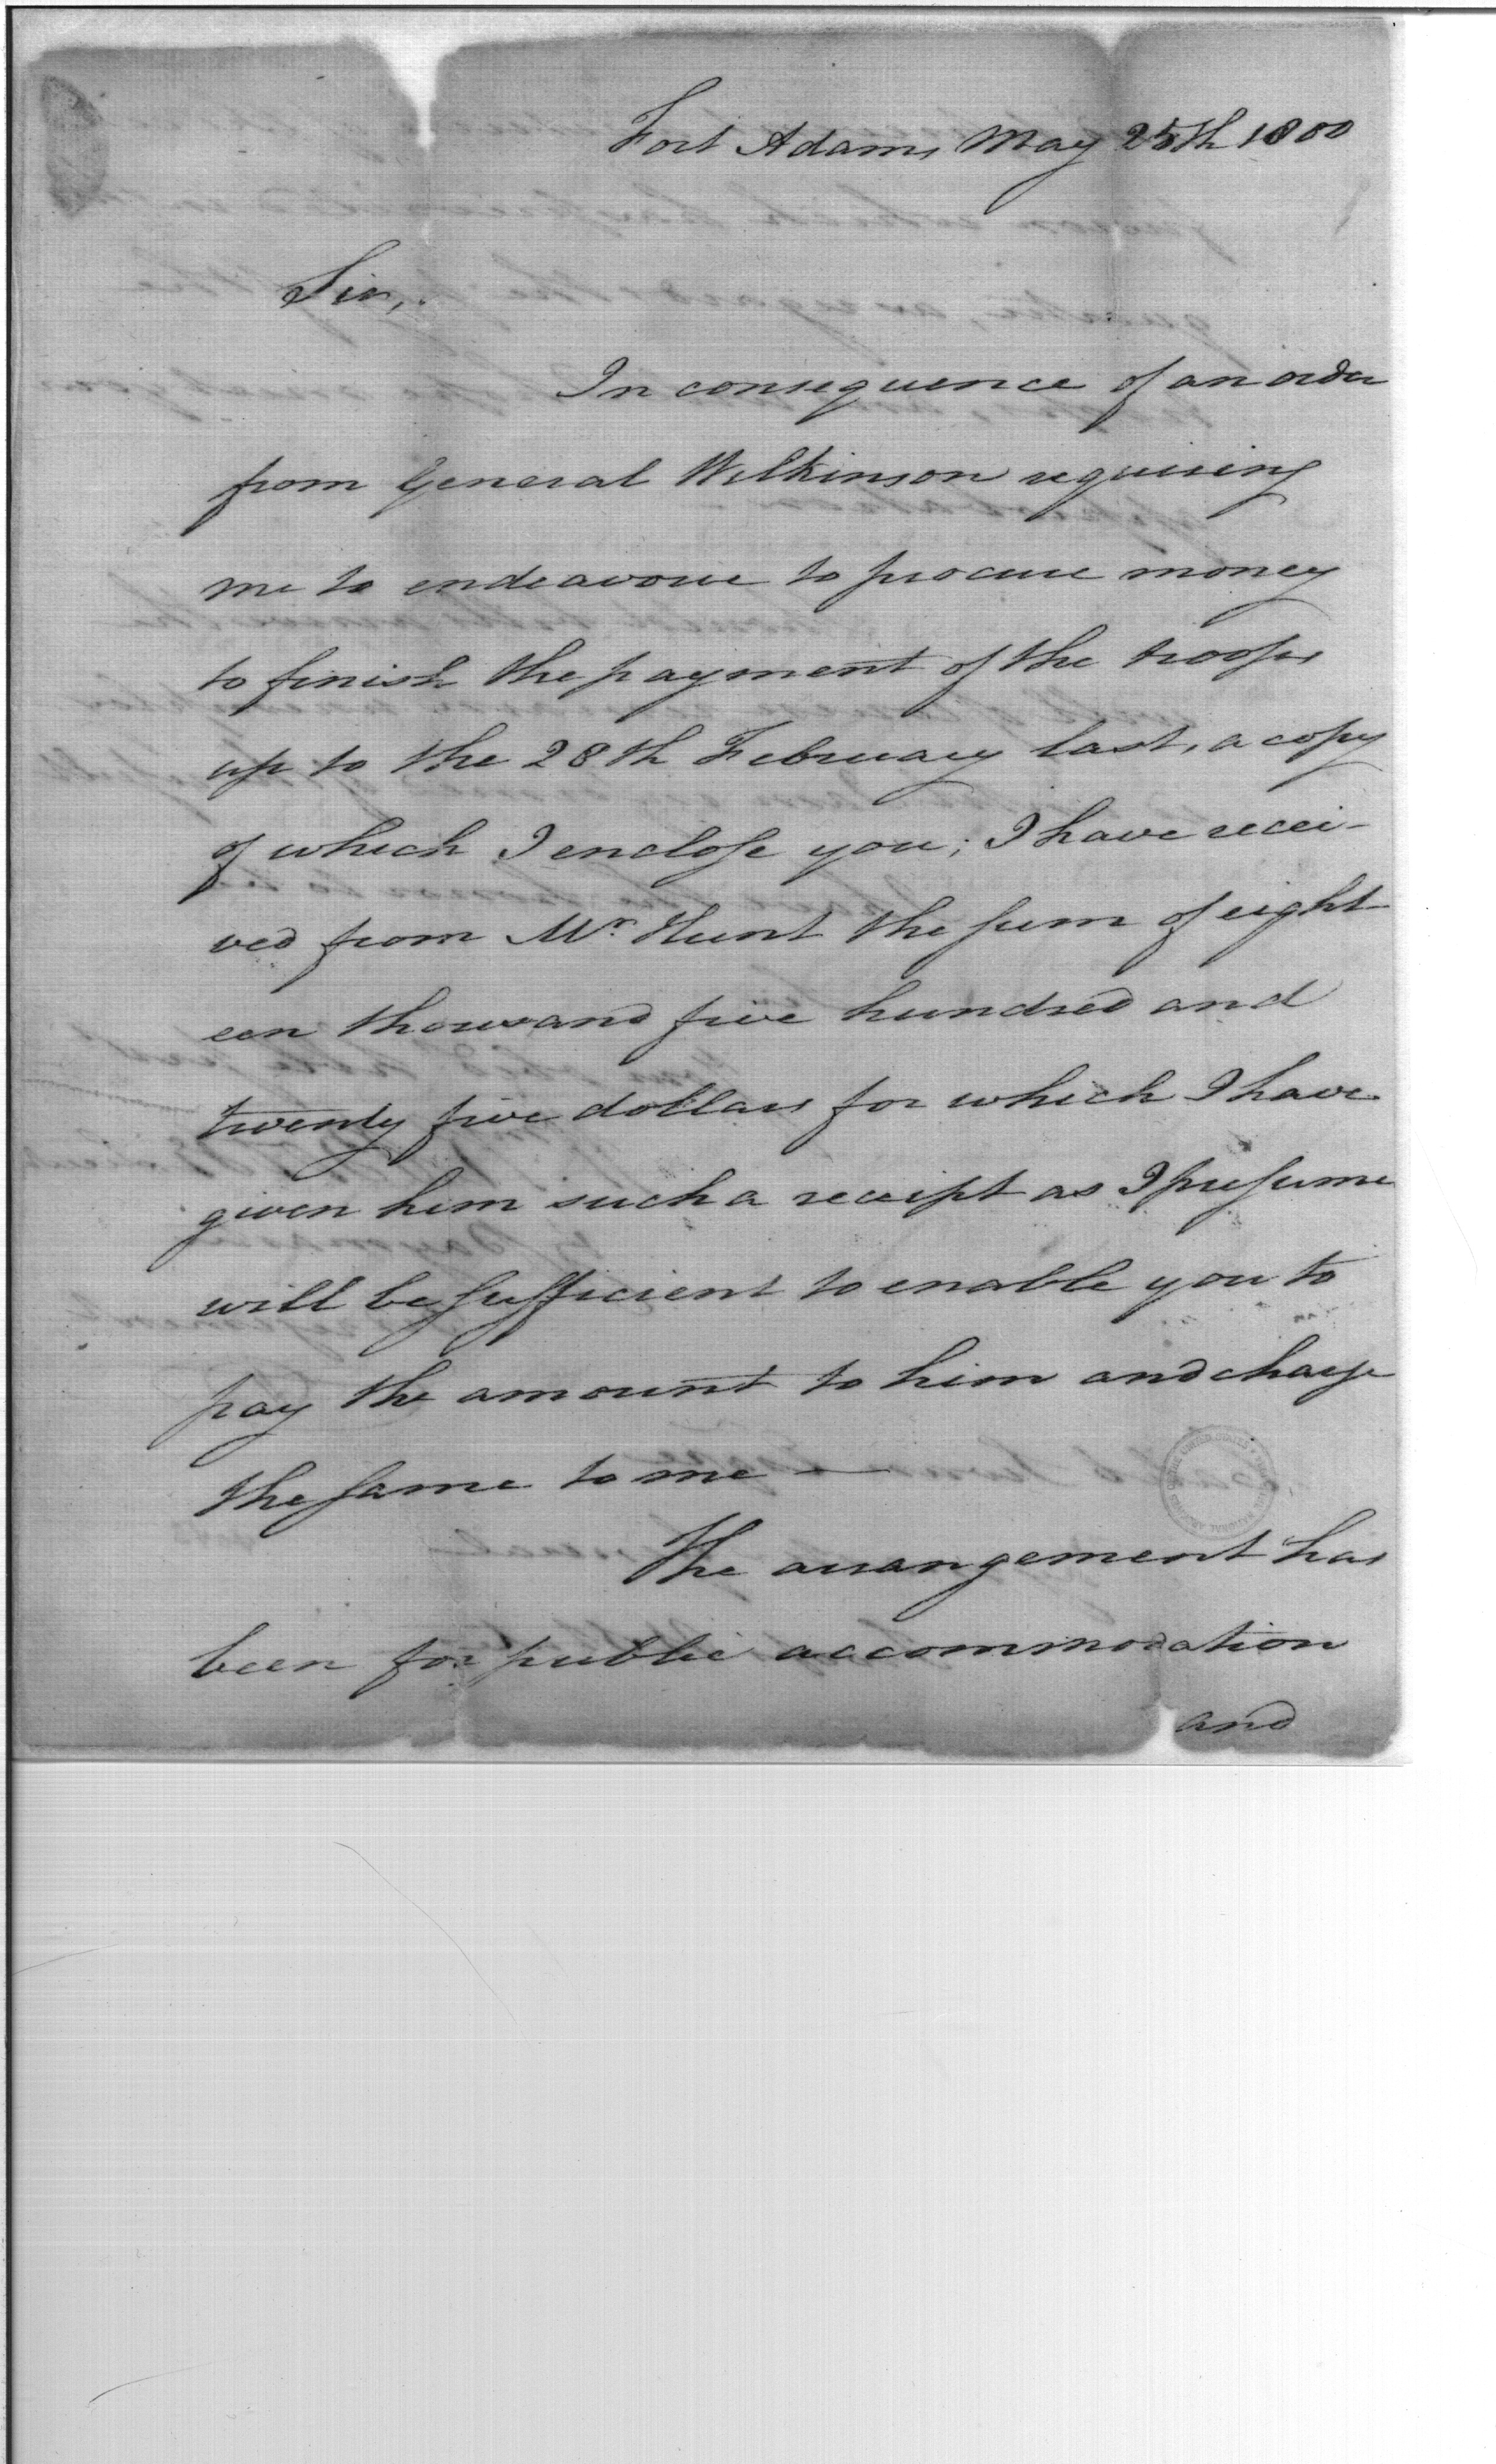 Fort Adams May 25th 1800
Sir,
In consequence of an order
from General Wilkinson requiring
me to endeavour to procure money
to finish the payment of the troops
up to the 28th February last, a copy
of which I enclose you; I have recei-
ved from Mr. Hunt the sum of eight
een thousand five hundred and
twenty five dollars for which I have
given him such a receipt as I presume
will be sufficient to enable you to
pay the amount to him and charge
the same to me —
The arrangement has
been for public accommodation
and